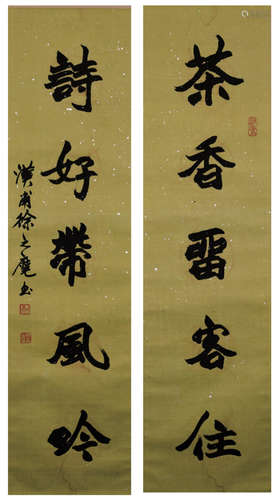 茶香畱客住
詩好帶風吟
漢甫徐之